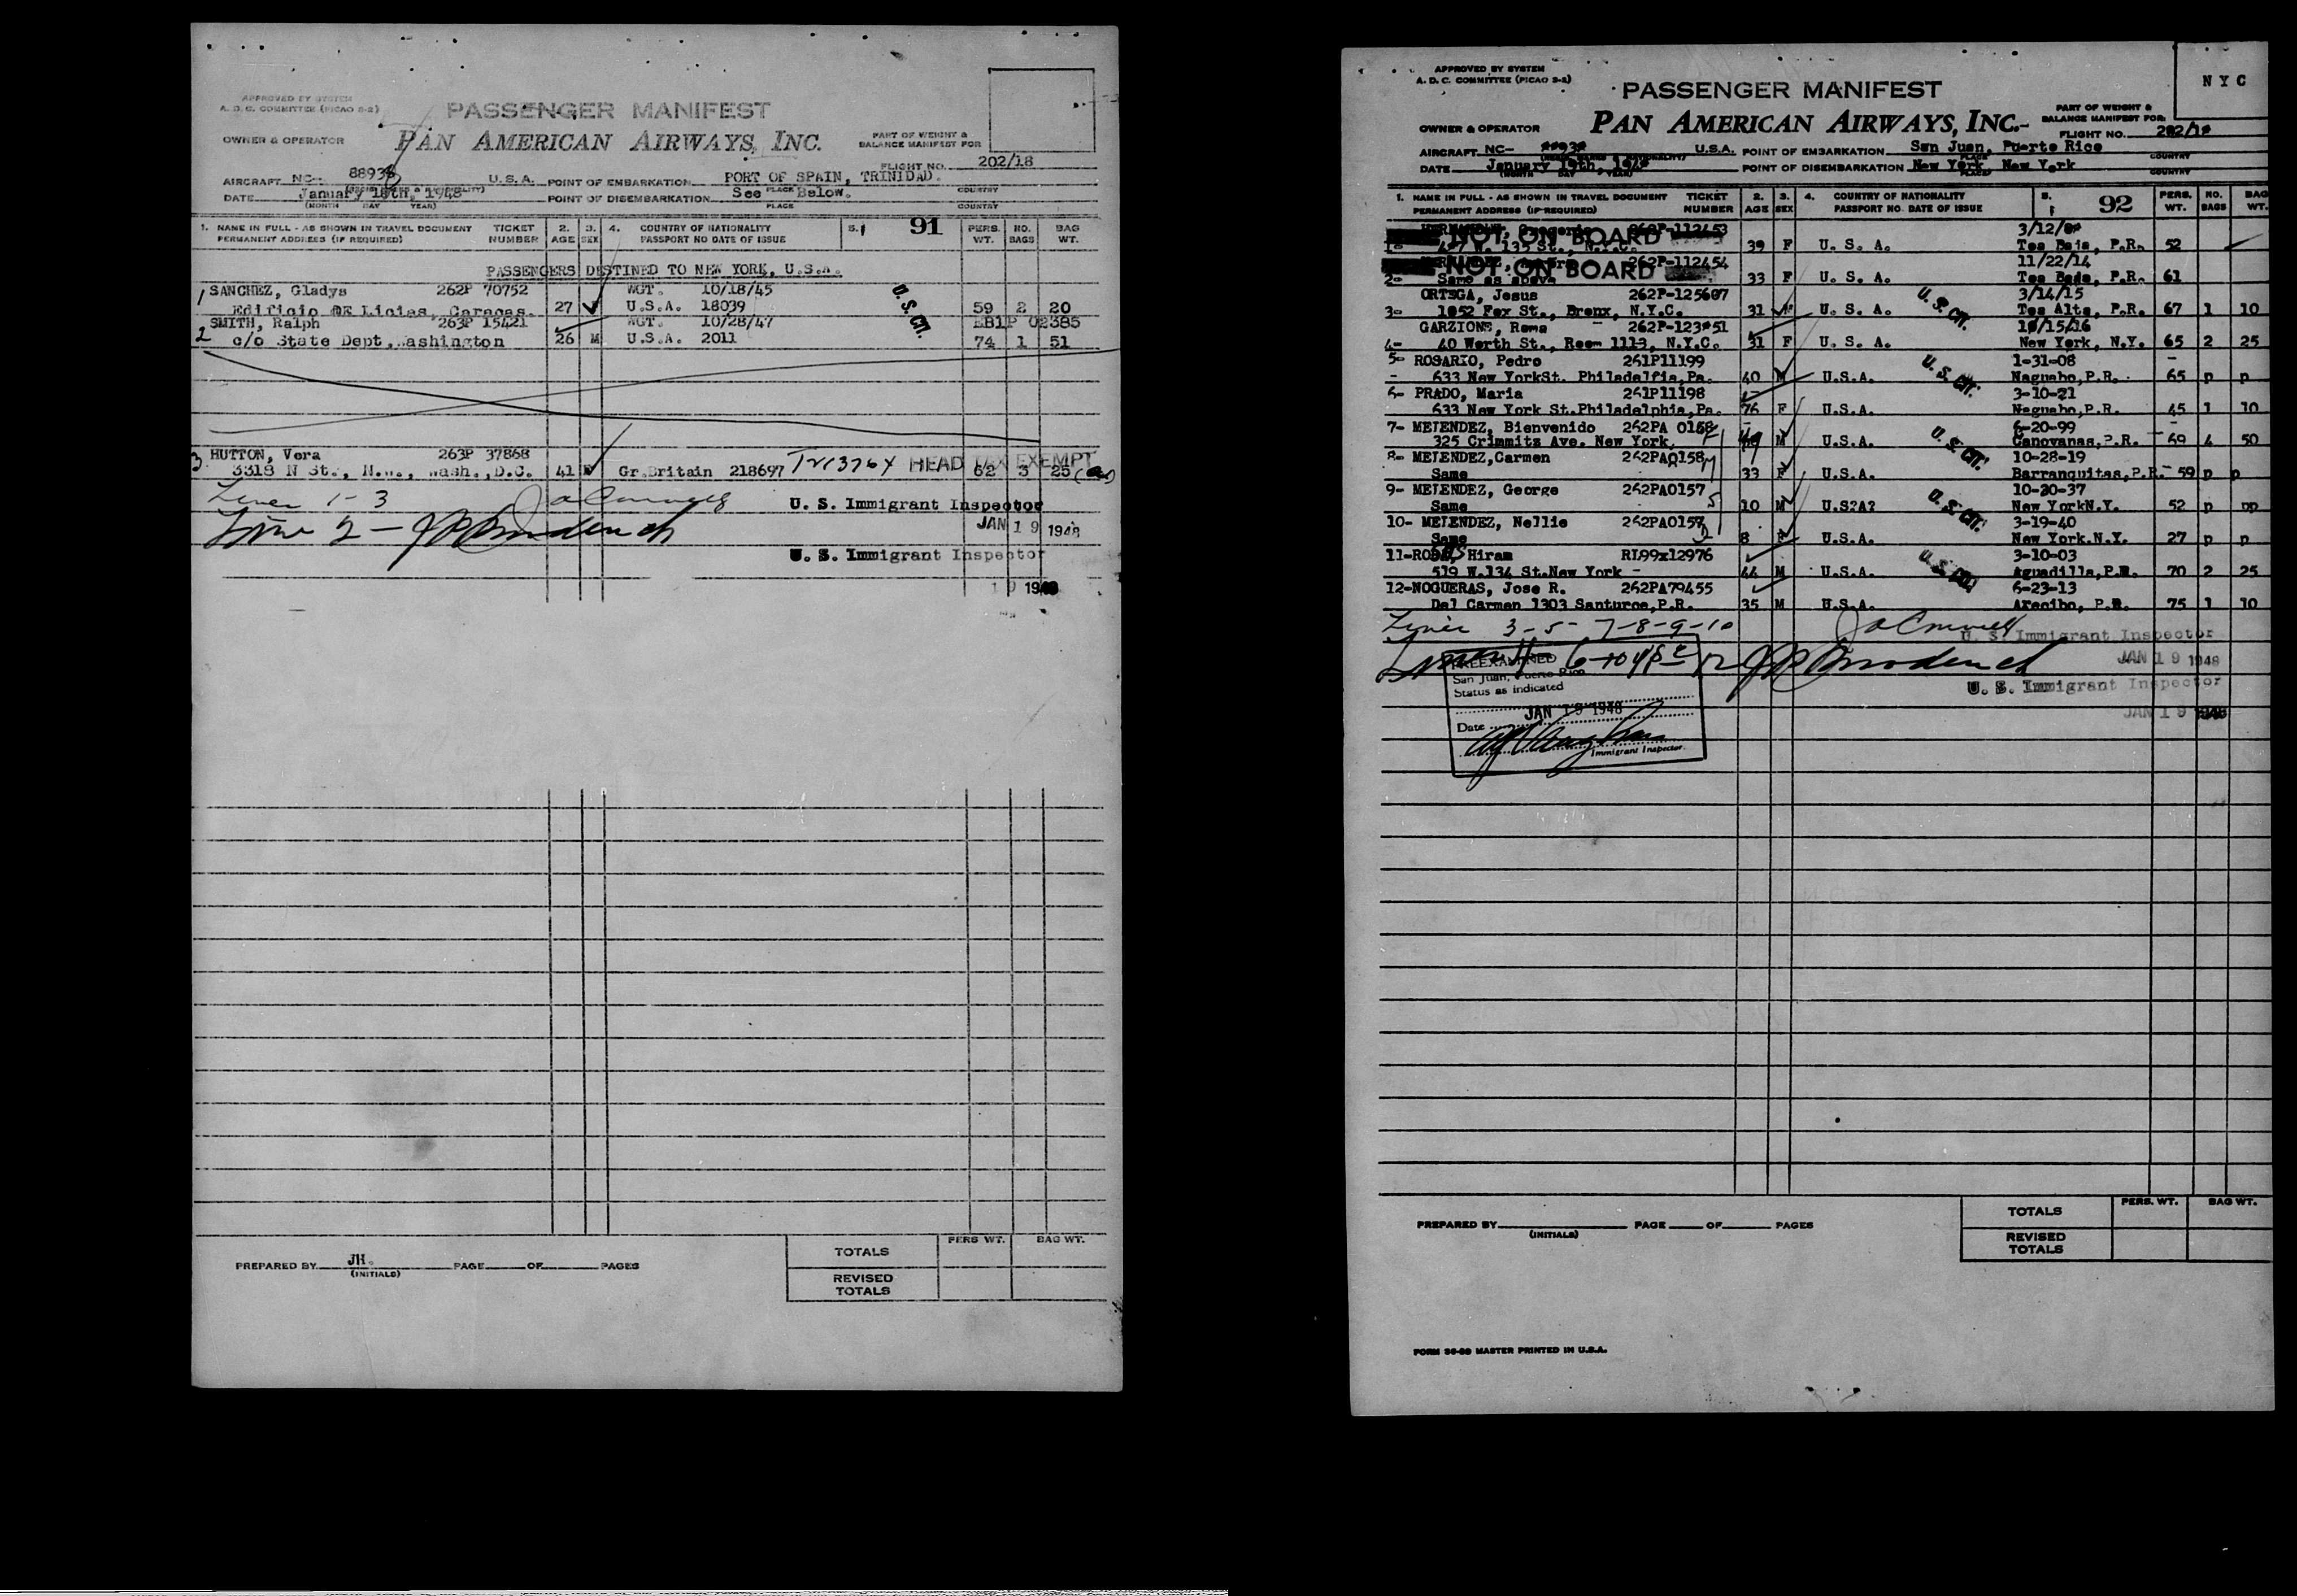 APPROVED BY SYSTEM
A. D. C. COMMITTEE (PICAO S-2)
PASSENGER MANIFEST
OWNER & OPERATOR PAN AMERICAN AIRWAYS, INC. PART OF WEIGHT & BALANCE MANIFEST FOR
FLIGHT NO. 202/18
AIRCRAFT NC- U.S.A. POINT OF EMBARKATION PORT OF SPAIN, TRINIDAD.
DATE January 18th, 1948 POINT OF DISEMBARKATION See Below.
(MONTH DAY YEAR) PLACE COUNTRY
1. NAME IN FULL - AS SHOWN IN TRAVEL DOCUMENT TICKET 2. 3. 4. COUNTRY OF NATIONALITY 5. 91 PERS. NO. BAG
PERMANENT ADDRESS (IF REQUIRED) NUMBER AGE SEX PASSPORT NO DATE OF ISSUE WT. BAGS WT.
PASSENGERS DESTINED TO NEW YORK, U.S.A.
1 SANCHEZ, Gladys 262P 70752 WGT. 10/18/45 U.S. CIT.
Edificio Licias, Caracas. 27 U.S.A. 18039 59 2 20
SMITH, Ralph 263P 15421 WGT. 10/28/47 EB1P 02385
2 c/o State Dept, Washington 26 M U.S.A. 2011 74 1 51
HUTTON, Vera 263P 37868
3 3318 N St., N.W., Wash.,D.C. 41 Gr.Britain 218697 HEAD TAX EXEMPT 62 3 25
Lines 1-3
U. S. Immigrant Inspector
Line 2 - JAN 19 1948
U. S. Immigrant Inspector
19 1948
PREPARED BY JH. PAGE OF PAGES
(INITIALS)
PERS WT. BAG WT.
TOTALS
REVISED TOTALS
APPROVED BY SYSTEM
A. D. C. COMMITTEE (PICAO S-2)
NYC
PASSENGER MANIFEST
OWNER & OPERATOR PAN AMERICAN AIRWAYS, INC. PART OF WEIGHT & BALANCE MANIFEST FOR
FLIGHT NO. 202/18
AIRCRAFT NC- U.S.A. POINT OF EMBARKATION San Juan, Puerto Rico
DATE January 19th, 1948 POINT OF DISEMBARKATION New York New York
(MONTH DAY YEAR) PLACE COUNTRY
1. NAME IN FULL - AS SHOWN IN TRAVEL DOCUMENT TICKET 2. 3. 4. COUNTRY OF NATIONALITY 5. 92 PERS. NO. BAG
PERMANENT ADDRESS (IF REQUIRED) NUMBER AGE SEX PASSPORT NO. DATE OF ISSUE WT. BAGS WT.
NOT ON BOARD 262P-112453
W. 135 St., N.Y.C. 39 F U. S. A. P.R. 52
NOT ON BOARD 262P-112454 11/22/14
2- Same as above 33 F U. S. A. P.R. 61
ORTEGA, Jesus 262P-125607 U.S. CIT. 3/14/15
3- 1052 Fox St., Bronx, N.Y.C. 31 M U. S. A. Toa Alta, P.R. 67 1 10
GARZIONE, Roma
4- 40 Worth St., Room 1113, N.Y.C. 31 F U. S. A. New York, N.Y. 65 2 25
5- ROSARIO, Pedro 261P11199 U.S. CIT. 1-31-08
633 New YorkSt. Philadelfia,Pa. 40 M U.S.A. Naguabo,P.R. 65 p p
6- PRADO, Maria 261P11198 3-10-21
633 New York St.Philadelphia,Pa. 76 F U.S.A. Naguabo,P.R. 45 1 10
7- MEIENDEZ, Bienvenido 262PA 0158 U.S. CIT. 6-20-99
325 Crimmitz Ave. New York. M U.S.A. Canovanas,P.R. 69 4 50
8- MEIENDEZ,Carmen 262PA0158 10-28-19
Same 33 F U.S.A. Barranquitas,P.R. 59 p p
9- MEIENDEZ, George 262PA0157 U.S. CIT. 10-20-37
Same 10 M U.S?A? New YorkN.Y. 52 p pp
10- MEIENDEZ, Nellie 262PA0157 3-19-40
Same 8 F U.S.A. New York.N.Y. 27 p p
11- Hiram RI99x12976 3-10-03
519 W.134 St.New York - 44 M U.S.A. Aguadilla,P.R. 70 2 25
12-NOGUERAS, Jose R. 262PA79455 6-23-13
Del Carmen 1303 Santurce,P.R. 35 M U.S.A. Arecibo, P.R. 75 1 10
Lines 3-5- 7-8-9-10
U. S. Immigrant Inspector
JAN 19 1948
U. S. Immigrant Inspector
JAN 19 1948
PREEXAMINED
San Juan, Puerto Rico
Status as indicated
Date JAN 19 1948
Immigrant Inspector.
PREPARED BY PAGE OF PAGES
(INITIALS)
PERS. WT. BAG WT.
TOTALS
REVISED TOTALS
FORM 36-89 MASTER PRINTED IN U.S.A.